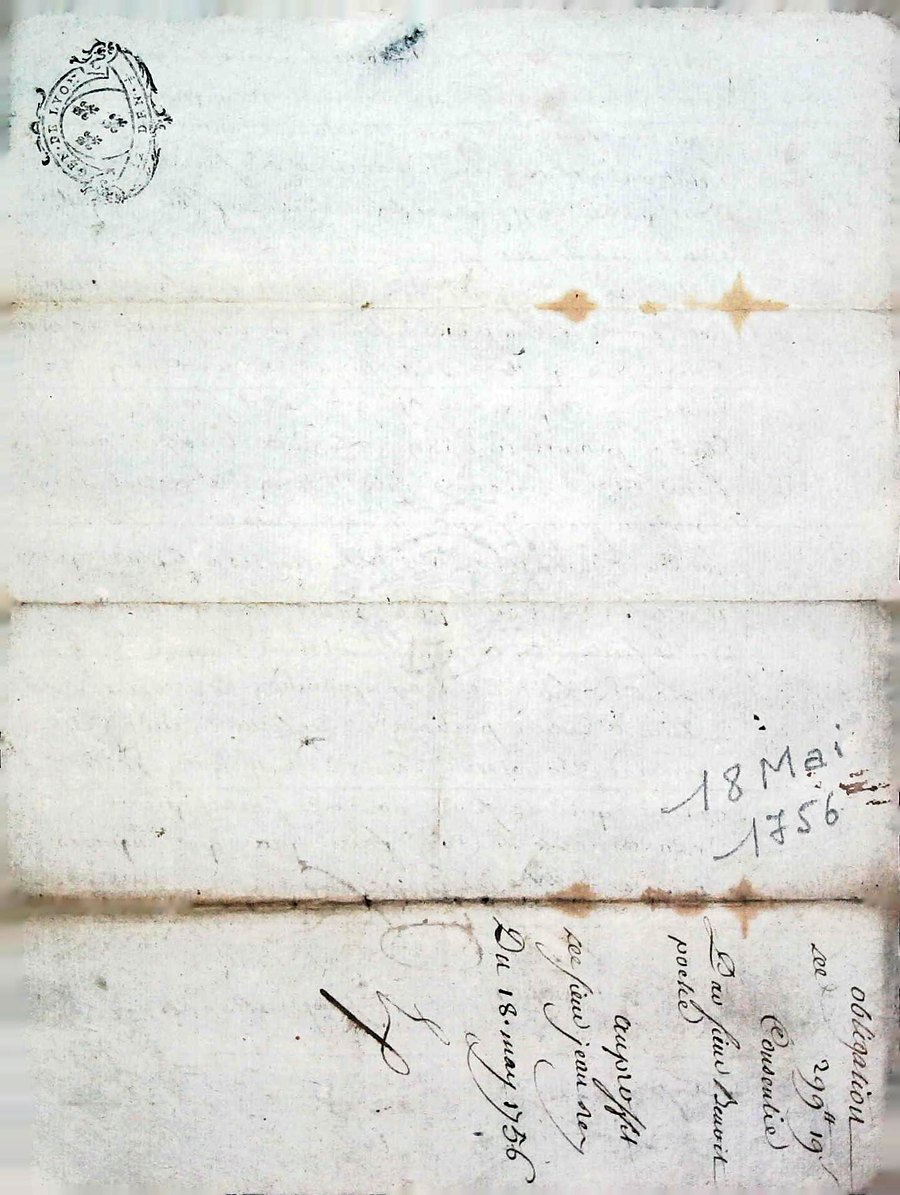 GEN · DE LYON
DEN ·
18 Mai
1756
obligation
de 299ᵗᵗ 19ˢ
Consentie
Par sieur Benoit
poche
au proffit
de sieur jean Rey
Du 18. may 1756